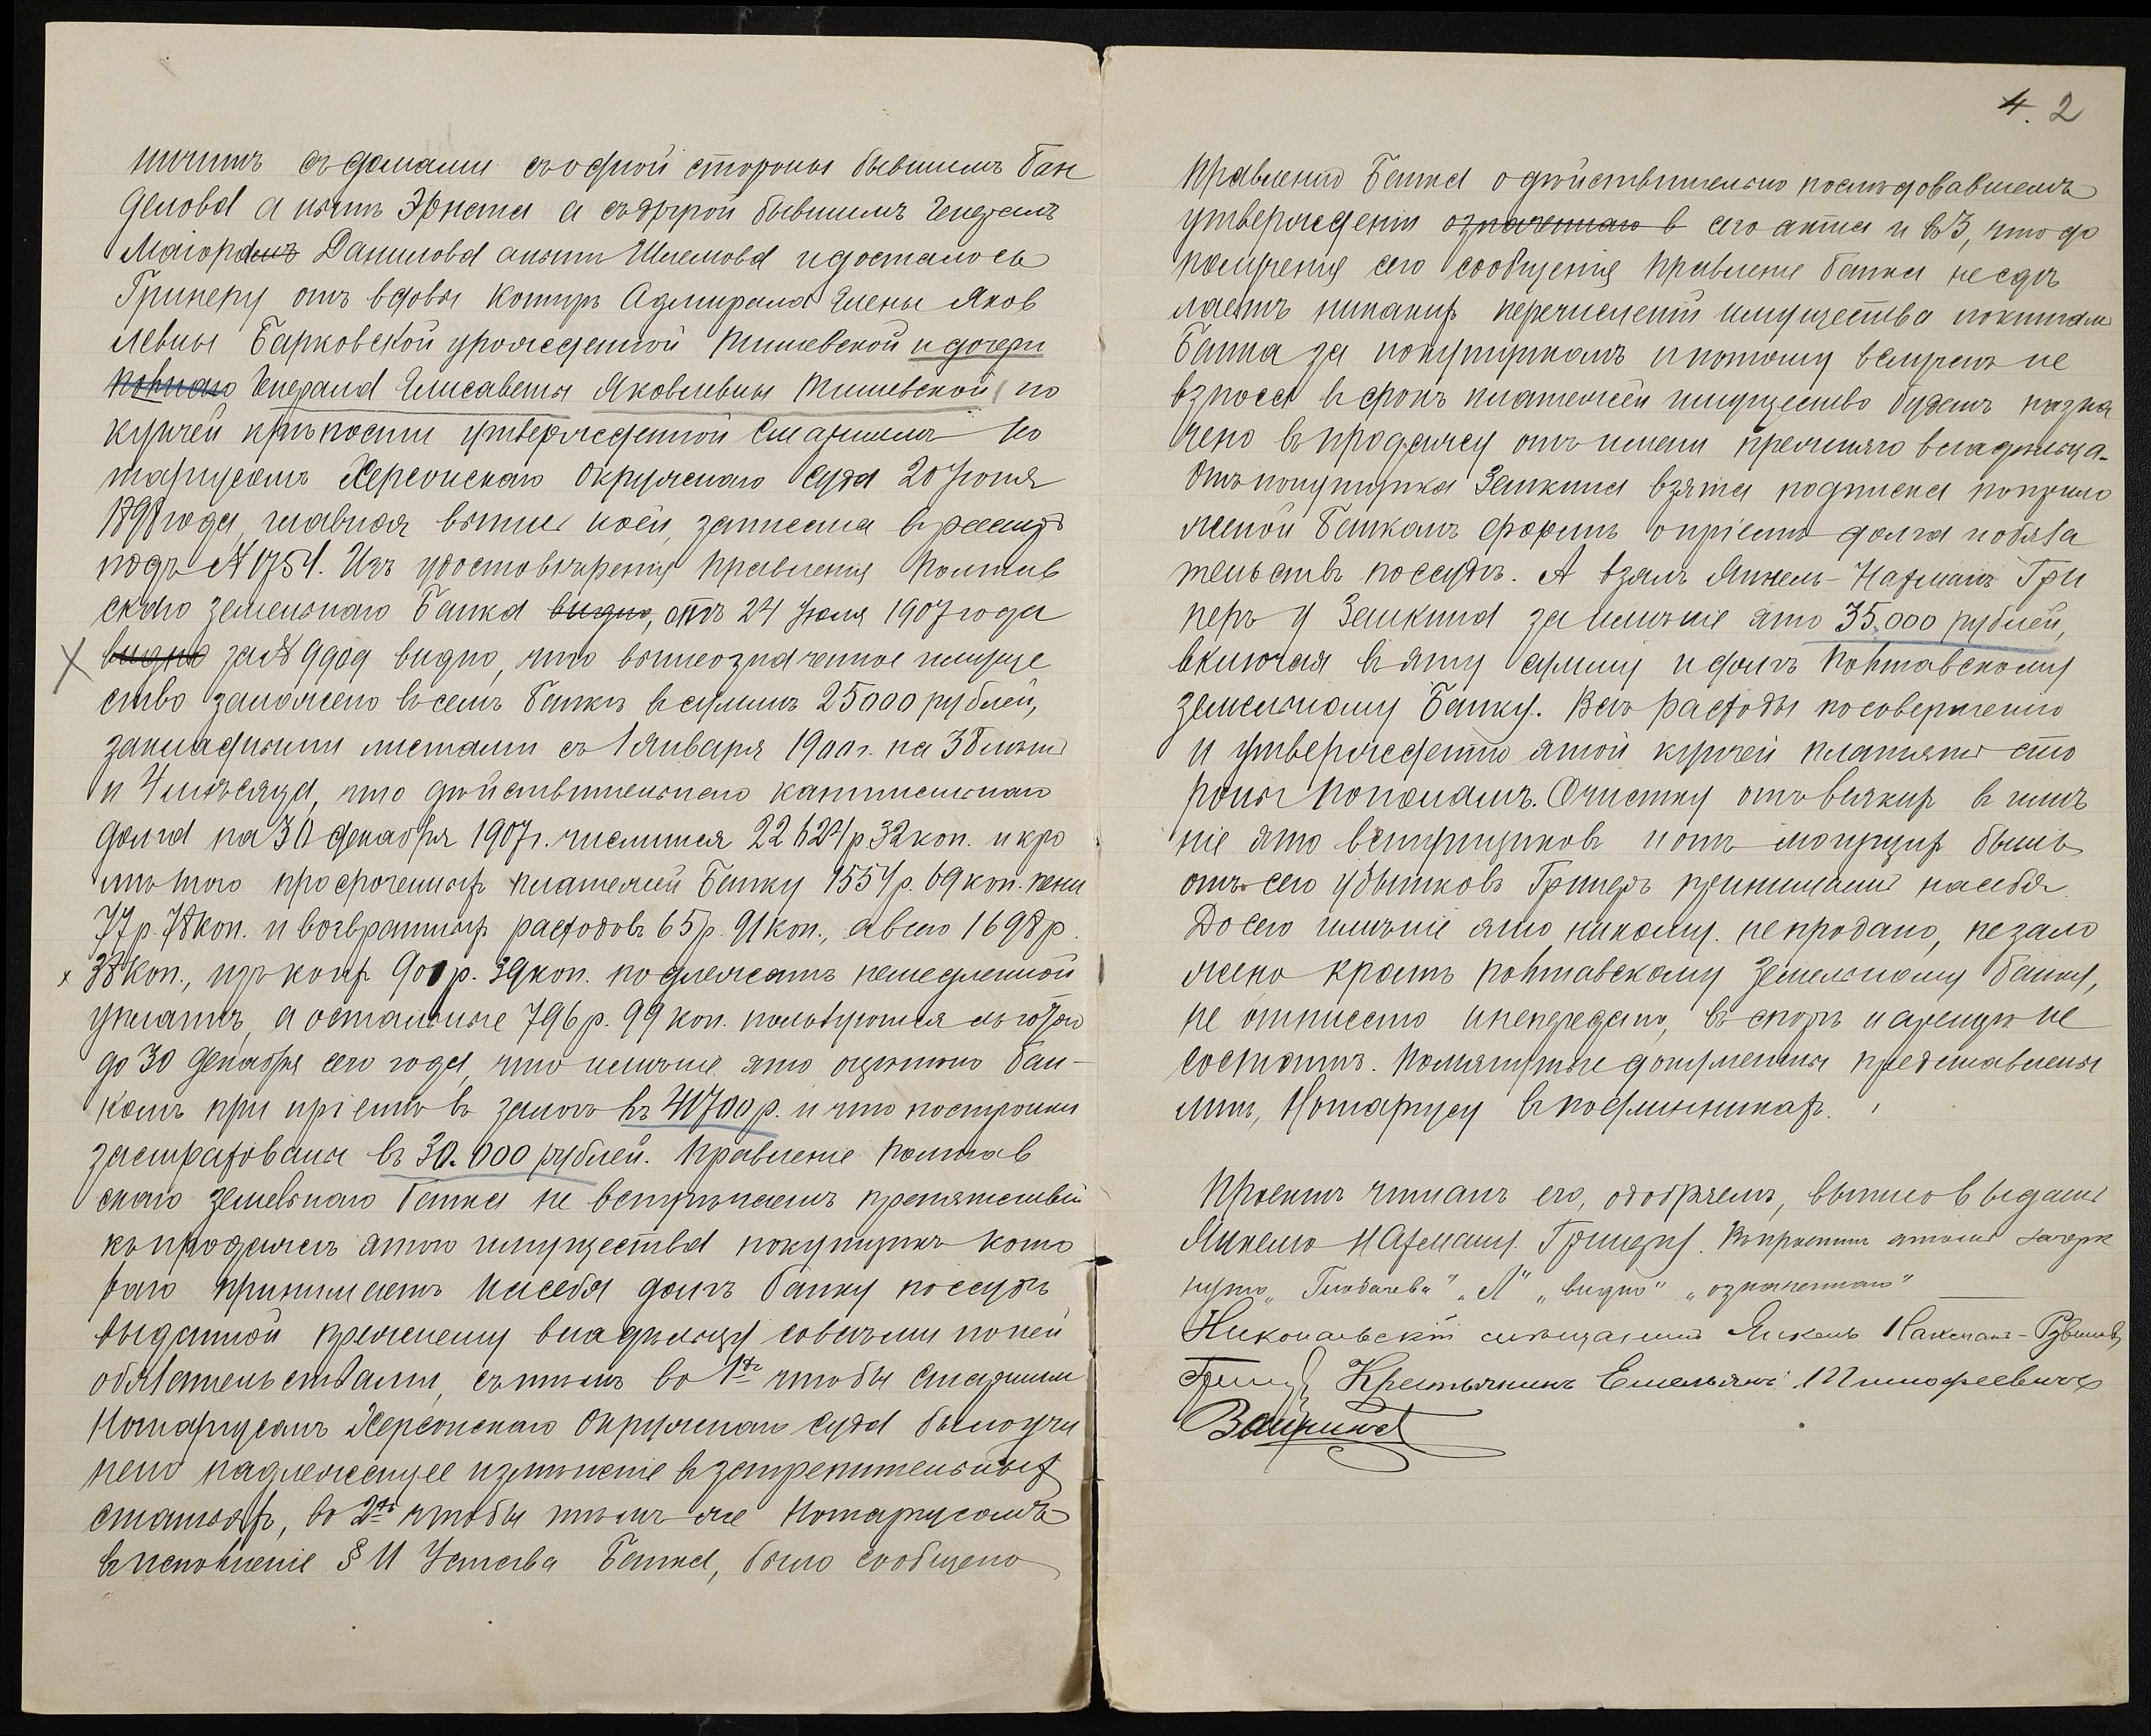 4. 2
ничитъ съ домами съ одной стороны бывшимъ Бан
делова а нынѣ Эрнста а съ другой бывшимъ Генералъ
Маіоромъ Данилова а нынѣ Шлемова и досталось
Гринеру отъ вдовы Контръ Адмирала Елены Яков
левны Барковской урожденной Тишевской и дочери
полнаго Генерала Елисаветы Яковлевны Тишевской по
купчей крѣпости утвержденной Старшимъ Но
таріусомъ Херсонскаго Окружнаго Суда 20 Іюня
1898 года, главная выпись коей, записана въ реестръ
подъ № 1751. Изъ удостовѣренія Правленія Полтав
скаго Земельнаго Банка видно, отъ 24 Іюля 1907 года
видно за № 9909 видно, что вышеозначенное имуще
ство заложено въ семъ Банкѣ въ суммѣ 25000 рублей,
закладными листами съ 1 Января 1900 г. на 38 лѣтъ
и 4 мѣсяца, что дѣйствительнаго капитальнаго
долга на 30 декабря 1907 г. числится 22624 р 32 коп. и кро
мѣ того просроченныхъ платежей Банку 1554 р. 69 коп. пени
77 р. 78 коп. и возвратныхъ расходовъ 65 р. 91 коп., а всего 1698 р.
38 коп., изъ коихъ 901 р. 39 коп. подлежатъ немедленной
уплатѣ, а остальные 796 р. 99 коп. пользуются льготою
до 30 декабря сего года, что имѣніе это оцѣнено Бан-
комъ при пріемѣ въ залогъ въ 41700 р. и что постройки
застрахованы въ 30.000 рублей. Правленіе Полтав
скаго Земельнаго Банка не встрѣчаетъ препятствій
къ продажѣ этого имущества покупщику кото
раго принимаетъ на себя долгъ банку по ссудѣ
выданной прежнему владѣльцу со всѣми по ней
обязательствами, съ тѣмъ во 1хъ чтобы Старшимъ
Нотаріусомъ Херсонскаго Окружнаго Суда было учи
нено надлежащее измѣненіе въ запретительныхъ
статьяхъ, во 2хъ чтобы тѣмъ же Нотаріусомъ
въ исполненіе § 11 Устава Банка, было сообщено
Правленію Банка о дѣйствительно послѣдовавшемъ
утвержденіи означеннаго в сего акта и въ 3, что до
полученія сего сообщенія Правленіе банка не сдѣ
лаетъ никакихъ перечисленій имущества по книгам
Банка за покупщикомъ и потому въ случаѣ не
взноса въ срокъ платежей имущество будетъ назна
чено въ продажу отъ имени прежняго владѣльца.
Отъ покупщика Заикина взята подписка по прило
женной Банкомъ формѣ о пріемѣ долга и обяза
тельствъ по ссудѣ. А взялъ Янкель-Нахманъ Гри
неръ у Заикина за имѣніе это 35.000 рублей,
включая въ эту сумму и долгъ Полтавскому
Земельному Банку. Всѣ расходы по совершенію
и утвержденію этой купчей платятъ сто
роны пополамъ. Очистку отъ всякихъ въ имѣ
ніе это вступщиковъ и отъ могущихъ быть
отъ сего убытковъ Гринеръ принимаетъ на себя.
До сего имѣніе это никому не продано, не зало
жено кромѣ Полтавскому Земельному банку,
не отписано и не передано, въ спорѣ и арендѣ не
состоитъ. Помянутые документы представлены
мнѣ, Нотаріусу въ подлинникахъ.
Проектъ читанъ его, одобряемъ, выпись выдать
Янкелю Нахману Гринеру. Въ проектѣ этомъ зачерк
нуто „ “ „А“ „видно“ „означеннаго“
Николаевскій мѣщанинъ Янкель Нахманъ-Рувиновъ
Гринеръ Крестьянинъ Емельянъ Тимофеевичъ
Заикинъ